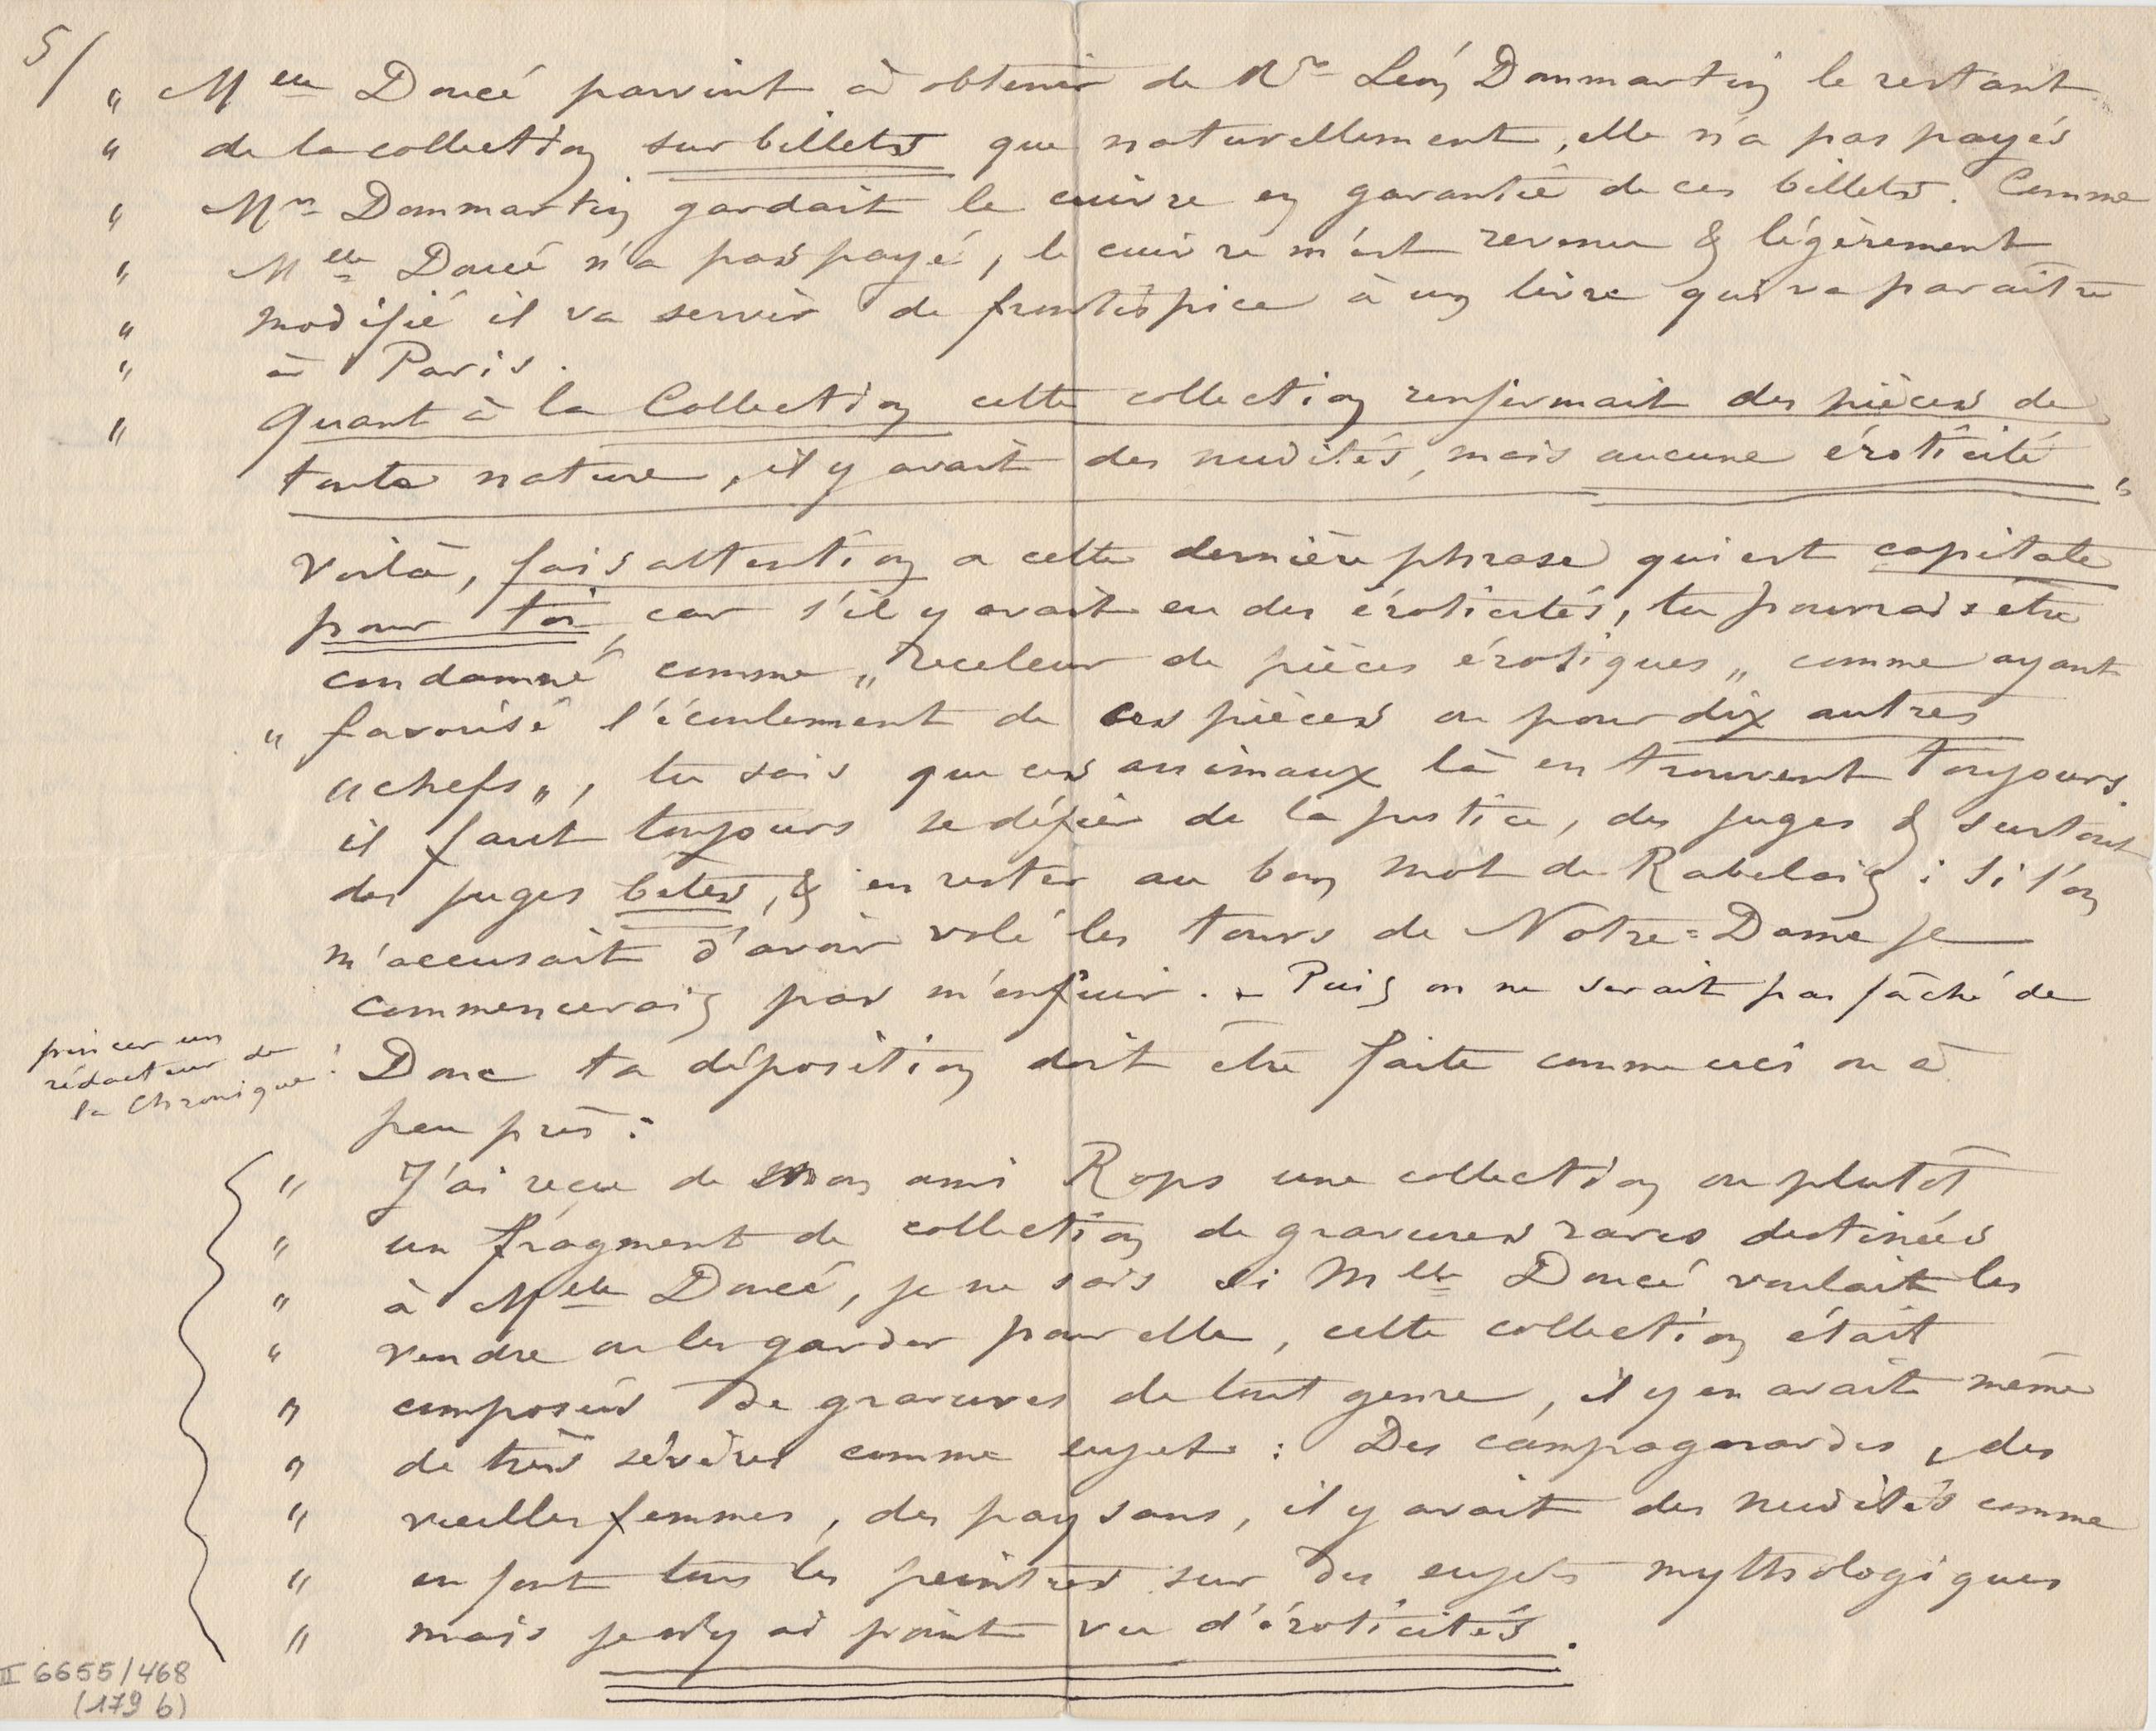 5/
" Melle Doucé parvint à obtenir de Mr Léon Dommartin le restant
" de la collection sur billets que naturellement, elle n'a pas payés
" Mr Dommartin gardait le cuivre en garantie de ces billets. Comme
" Melle Doucé n'a pas payé, le cuivre m'est revenu & légèrement
" modifié il va servir de frontispice à un livre qui va paraître
" à Paris.
" Quant à la Collection cette collection renfermait des pièces de
toute nature, il y avait des nudités, mais aucune éroticité "
Voilà, fais attention a cette dernière phrase qui est capitale
pour toi, car s'il y avait eu des éroticités, tu pourrais être
condamné comme " receleur de pièces érotiques " comme ayant
" favorisé l'écoulement de ces pièces ou pour dix autres
" chefs ", tu sais que ces animaux là en trouvent toujours.
il faut toujours se défier de la justice, des juges & surtout
des juges betes, & en rester au bon mot de Rabelais : Si l'on
m'accusait d'avoir volé les tours de Notre=Dame je
commencerais par m'enfuir. – Puis on ne serait pas fâché de
pincer un
rédacteur de
la Chronique !
Donc ta déposition doit être faite comme ceci ou à
peu près :
" J'ai reçu de mon ami Rops une collection ou plutôt
" un fragment de collection de gravures rares destinées
" à Melle Doucé, je ne sais si Melle Doucé voulait les
" vendre ou les garder pour elle, cette collection était
" composées de gravures de tout genre, il y en avait même
" de très sévères comme sujets : Des campagnardes, des
" vieilles femmes, des paysans, il y avait des nudités comme
" en font tous les peintres sur des sujets mythologiques
" mais je n'y ai point vu d'éroticités.
II 6655/468
(179 b)